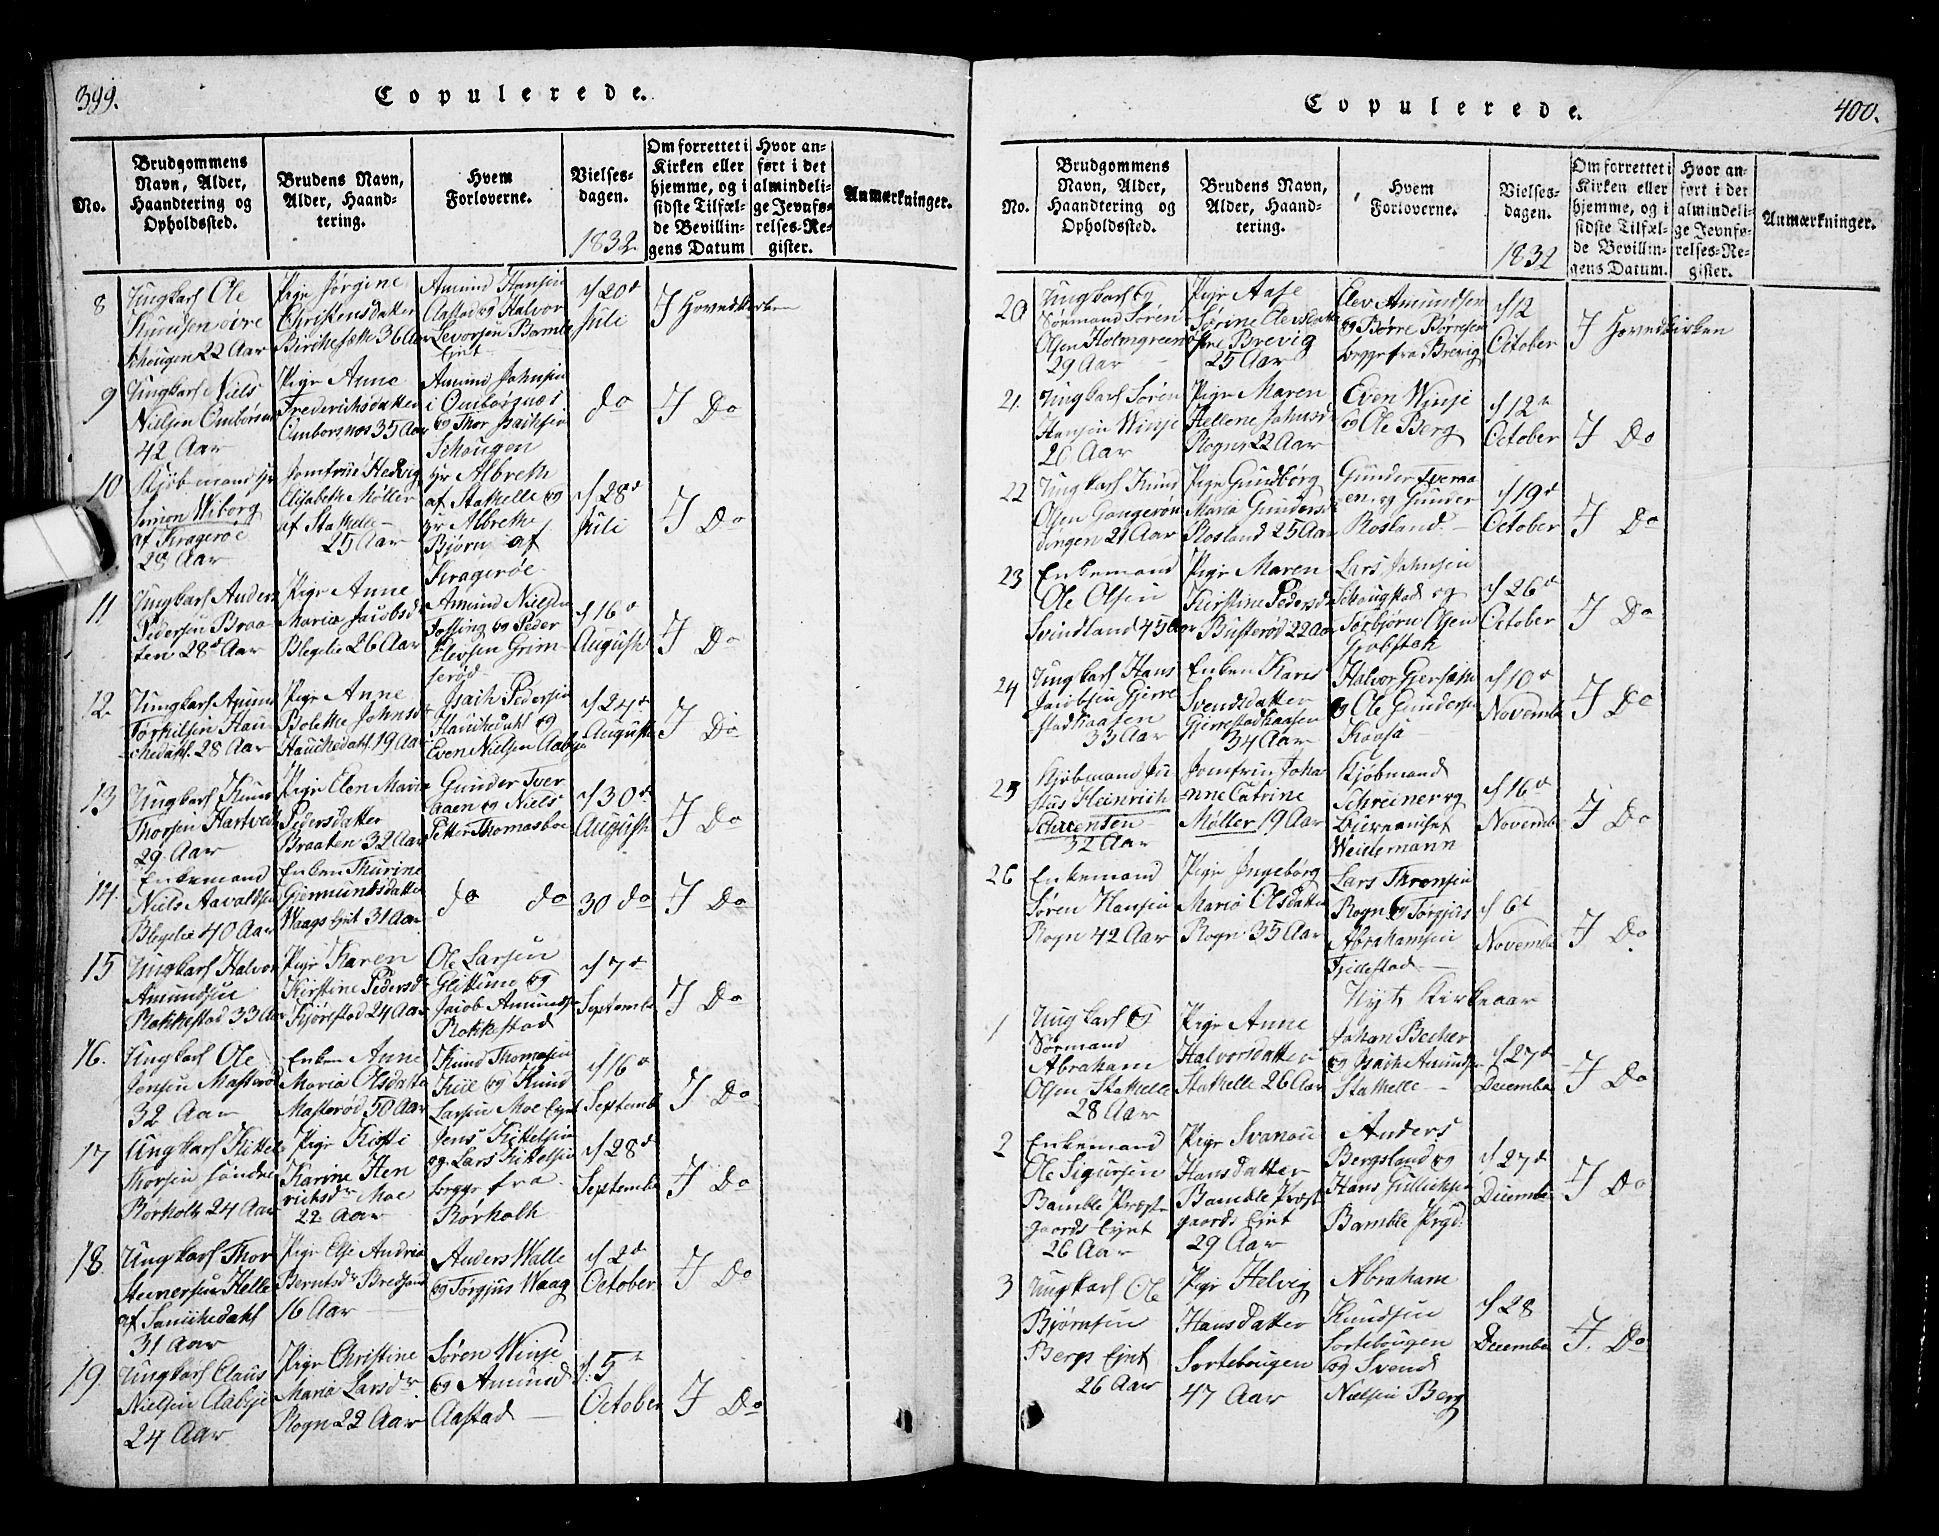 399.
Copulerede.
No.
Brudgommens Navn, Alder, Haandtering og Opholdssted.
Brudens Navn, Alder, Haandtering.
Hvem Forloverne.
Vielsesdagen.
1832
Om forrettet i Kirken eller hjemme, og i sidste Tilfælde Bevillingens Datum
Hvor anført i det almindelige Jevnførelses-Register.
Anmærkninger.
8
Ungkarl Ole
Knudsen øvre
Schougen 22 Aar
Pige Jørgine
Christensdatter
Birchesæth 36 Aar
Amund Hansen
Aastad og Halvor
Levorsen Bamble
Ejet
d 20de
Juli
I Hovedkirken
9
Ungkarl Niels
Nielsen Omborsnes
42 Aar
Pige Anne
Frederichsdatter
Omborsnos 35 Aar
Amund Johnsen
i Omborgnæs
og Thor Isachsen
Schougen
do
I Do
10
Kjøbmand Hr
Simon Wiborg
af Kragerøe
28 Aar
Jomfrue Hedvig
Elisabeth Møller
af Stathelle
25 Aar
Hr Albreth
af Stathelle og
Hr Albreth
Bjørn af
Kragerøe
d 28de
Juli
I Do
11
Ungkarl Anders
Pedersen Braaten 28 Aar
Pige Anne
Maria Jacobsd
Blegelie 26 Aar
Amund Nielsen
Fossing og Peder
Elevsen Grimserød
d 16de
August
I Do
12.
Ungkarl Amund
Torkilsen Hauchedahl. 28 Aar
Pige Anne
Bolette Johnsdr
Hauchedahl. 19 Aar
Isach Pedersen
Hauchedahl og
Even Nielsen Aabye
d 24de
August
I Do
13
Ungkarl Knud
Thorsen Hartvedt
29 Aar
Pige Elen Maria
Pedersdatter
Braaten 32 Aar
Gunder Tveraaen og Niels
Petter Thomasboe
d 30de
August
I Do
14.
Enkemand
Niels Aavaldsen
Blegelie 40 Aar
Enken Thurine
Gjermundsdatter
Waags Ejet 31 Aar
do do
30 do
I Do
15
Ungkarl Halvor
Amundsen
Rakkestad 33 Aar
Pige Karen
Kirstine Pedersdr
Fjørestad 24 Aar
Ole Larsen
Glittume og
Jacob Amunds
Rakkestad
d 7de
September
I Do
16.
Ungkarl Ole
Jensen Masterød
32 Aar
Enken Anne
Maria Olsdatter
Masterød 50 Aar
Knud Thomasen
og Knud
Larsen Moe Ejet
d 16de
September
I Do
17
Ungkarl Kittel
Thorsen søndre
Rørholt 24 Aar
Pige Kisti
Karine Henrichsdr Moe
22 Aar
Jens Kittelsen
og Lars Kittelsen
begge fra
Rørholt
d 28de
September
I Do
18.
Ungkarl Thor
Steinersen Helle
af Sanichedahl
31 Aar
Pige Else Andria
Berntsdr Bredsand
16 Aar
Anders Walle
og Torgjus Waag
d 2de
October
I Do
19.
Ungkarl Claus
Nielsen Aabye
24 Aar
Pige Christine
Maria Larsdr
Rogn 22 Aar
Søren Winje
og Amund
Aastad
d. 5te
October
I Do
400.
Copulerede.
No.
Brudgommens Navn, Alder, Haandtering og Opholdssted.
Brudens Navn, Alder, Haandtering.
Hvem Forloverne.
Vielsesdagen.
1832
Om forrettet i Kirken eller hjemme, og i sidste Tilfælde Bevillingens Datum.
Hvor anført i det almindelige Jevnførelses-Register.
Anmærkninger.
20
Ungkarl og
Sømand Søren
Olsen Holmgreen
29 Aar
Pige Aase
Sørine Elevsdatter
fra Brevig
25 Aar
Elev Amundsen
og Børre Børresen
begge fra Brevig
d 12
October
I Hovedkirken
21.
Ungkarl Søren
Hansen Winje
20 Aar
Pige Maren
Hellene Johnsd
Rogn 22 Aar
Even Winje
og Ole Berg
d 12te
October
I Do
22
Ungkarl Knud
Olsen Gongerødingen 21 Aar
Pige Gundborg
Maria Gundersd
Rosland 25 Aar
Gunder Tveraaen og Gunder
Rosland
d 19de
October
I Do
23
Enkemand
Ole Olsen
Svindland 45 Aar
Pige Maren
Kirstine Pedersd
Busterød 22 Aar
Lars Johnsen
Schougstad og
Torbjørn Olsen
Grobstok
d 26de
October
I Do
24
Ungkarl Hans
Jacobsen Gjerrestadkaasen
33 Aar
Enken Karis
Svendsdatter
Gjerrestadkaasen
34 Aar
Halvor
og Ole Gundersen
Kaasa
d 10de
November
I Do
25
Kjøbmand Justus Heinrich
32 Aar
Jomfrue Johanne Catrine
Møller 19 Aar
Kjøbmand
Schreiner og
Weidemann
d 16de
November
I Do
26
Enkemand
Søren Hansen
Rogn 42 Aar
Pige Ingeborg
Maria Olsdatter
Rogn 35 Aar
Lars Thronsen
Rogn og Torgjus
Abrahamsen
Fjellestad
d 6te
November
I Do
Nyt Kirkeaar
1
Ungkarl og
Sømand
Abraham
Olsen Stathelle
28 Aar
Pige Anne
Halvorsdatter
Stathelle 26 Aar
Johan Becher
og Isach Amunds
Stathelle
d 27de
December
I Do
2
Enkemand
Ole Sigursen
Bamble Præstgaards Ejet
26 Aar
Pige Svanou
Hansdatter
Bamble Præstgaards Ejet
29 Aar
Anders
Bergsland og
Hans Gullichs
Bamble Prgd.
d 27de
December
I Do
3
Ungkarl Ole
Bjørnsen
Bergs Ejet
26 Aar
Pige Helvig
Hansdatter
Sortebougen
47 Aar
Abraham
Knudsen
Sortebougen
og Svend
Nielsen Berg
d 28
December
I. Do